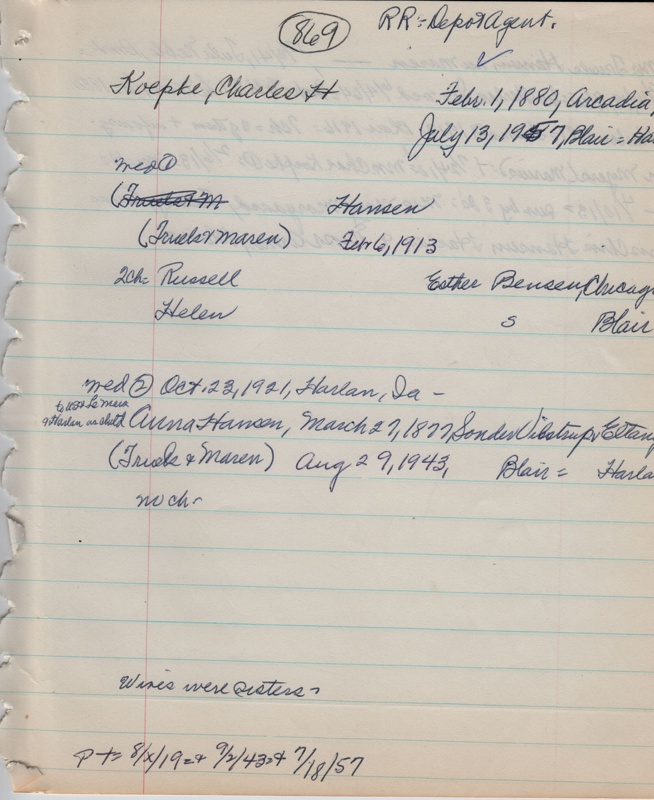 869
RR = Depot Agent.
Koepke, Charles H Febr. 1, 1880, Arcadia,
July 13, 1957, Blair = Ha
med ①
( Hansen
(Truels & Maren) Feb 6, 1913
2ch = Russell Esther Bensen, Chicag
Helen s Blair
med ② Oct. 23, 1921, Harlan, Ia -
to US &
& Harlan as child Anna Hansen, March 27, 1877, Sonder Vilstrup,
(Truels & Maren) Aug 29, 1943, Blair = Harla
no ch -
Wives were sisters -
8/x/19 = & 9/2/43 = & 7/18/57